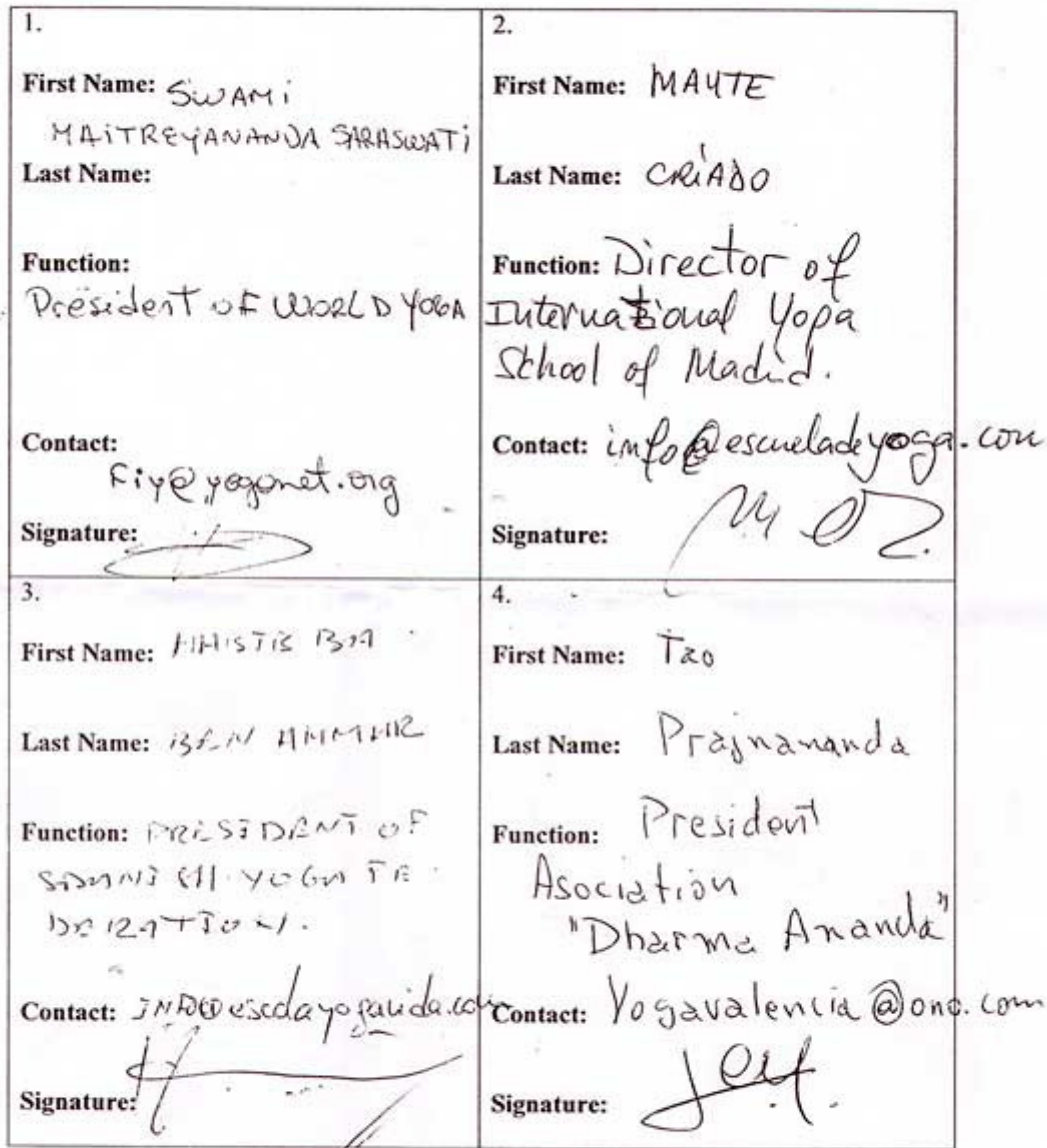 1.
First Name: SWAMi
MAiTREYANANDA SARASWATi
Last Name:
Function:
President OF WORLD YOGA
Contact:
Fiy@yogonet.org
Signature:
2.
First Name: MAYTE
Last Name: CRIADO
Function: Director of
International Yoga
School of Madrid.
Contact: info@escueladeyoga.com
Signature:
3.
First Name:
Last Name: BEN
Function: PRESIDENT OF
YOGA FE
DERATION.
Contact:
Signature:
4.
First Name: Tao
Last Name: Prajnananda
Function: President
Asociation
"Dharma Ananda"
Contact: Yogavalencia@ono.com
Signature: